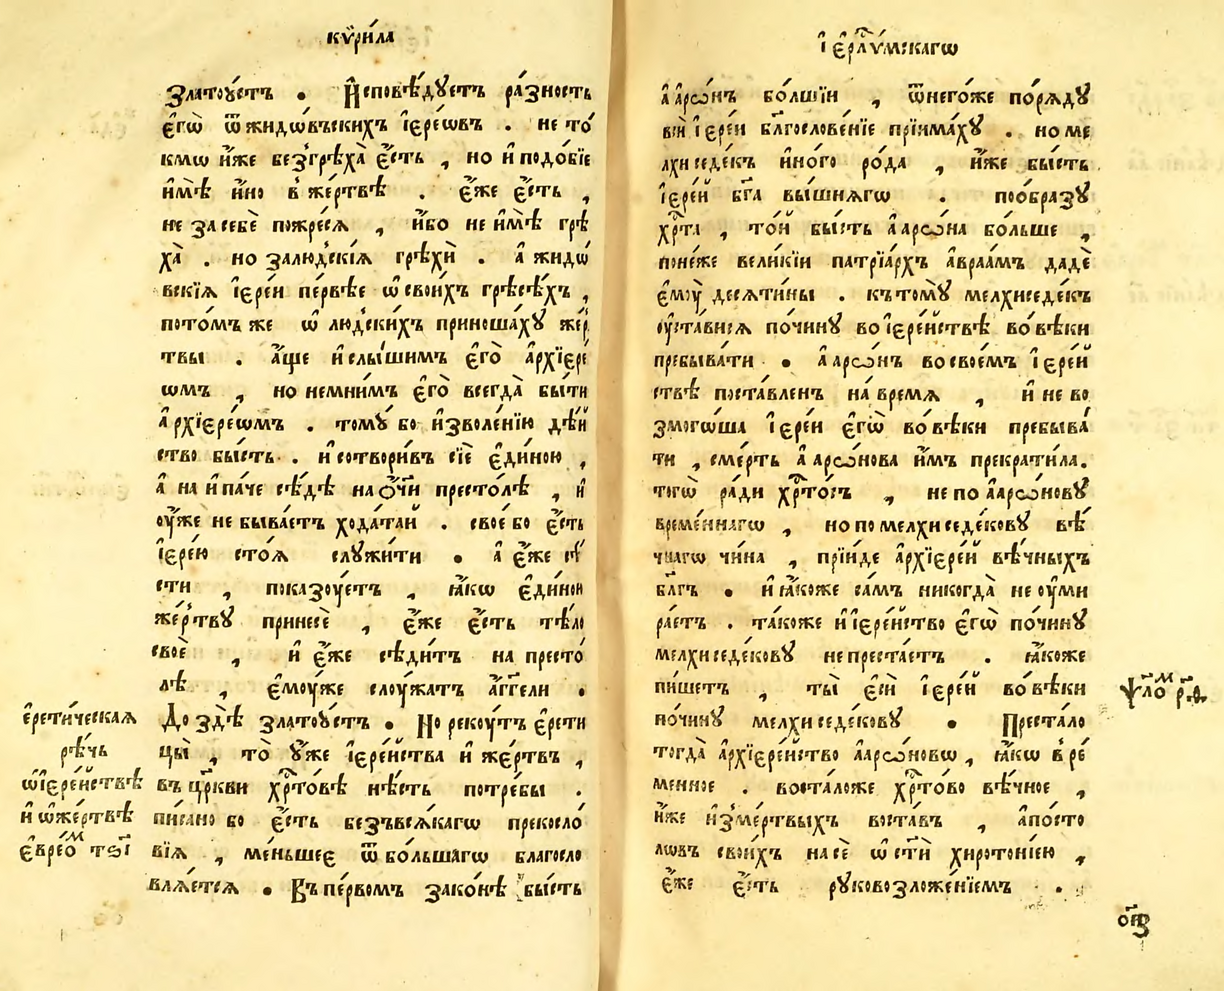 кѵ҆ри́ла
Златоу́стъ . И҆сповѣ́дꙋетъ ра́зность
є҆гѡ̀ ѿ жидѡ́въскихъ і҆єре́ѡвъ . не то́
кмѡ и҆́же без̾грѣха̀ є҆́сть , но и҆ подо́бїе
и҆мѣ̀ и҆́но в̾ же́ртвѣ . є҆́же є҆́сть ,
не за себѐ пожре́сѧ , и҆́бо не и҆мѣ̀ грѣ
ха̀ . но за людскі́ѧ грѣхѝ . а҆ жидѡ́
вскїѧ і҆єре́и пе́рвѣе ѡ҆ свои́хъ грѣсѣ́хъ ,
пото́мъ же ѡ҆ людски́хъ приноша́хꙋ же́р
твы . а҆́ще и҆ слы́шимъ є҆го̀ а҆рхїєре́
ѡмъ , но не мни́мъ є҆го̀ всегда̀ бы́ти
а҆рхїєре́ѡмъ . томꙋ̀ бо и҆зволе́нїю дѣ́й
ство бы́сть . и҆ сотвори́въ сїѐ є҆ди́ною ,
а҆ наипа́че сѣ́де на ѻ҆́ч҃и престо́лѣ , и҆
оу҆жѐ не быва́етъ хода́тай . свое́ бо є҆́сть
і҆єре́ю стоѧ̀ слꙋжи́ти . а҆ є҆́же сѣ́
сти , показꙋ́етъ , ꙗ҆́кѡ є҆ди́нои
же́ртвꙋ принесѐ , є҆́же є҆́сть тѣ́ло
своѐ , и҆ є҆́же сѣди́тъ на престо́
лѣ , є҆мꙋ́же слꙋ́жатъ а҆́гг҃ели .
До здѣ̀ златоу́стъ . Но рекꙋ́тъ є҆рети
цы̀ , то̀ ꙋ҆жѐ і҆єре́йства и҆ же́ртвъ ,
въ цр҃кви хр҃то́вѣ нѣ́сть потре́бы .
пи́сано бо є҆́сть безъ всѧ́кагѡ прекосло́
вїѧ , ме́ньшее ѿ бо́льшагѡ благосло
влѧ́етсѧ . Въ пе́рвомъ зако́нѣ бы́сть
є҆рети́ческаѧ
рѣ́чь
ѡ҆ і҆єре́йствѣ
и҆ ѡ҆ же́ртвѣ
є҆вре́ѡм
і҆єрл҃и́мскагѡ
а҆арѡ́нъ бо́лшїи , ѿ него́же по рѧ́дꙋ
всѝ і҆єре́и бл҃гослове́нїе прїима́хꙋ . но ме
лхиседе́къ и҆но́го ро́да , и҆́же бы́сть
і҆єре́й бг҃а вы́шнѧгѡ . по о́бразꙋ
хр҃та̀ , то́й бы́сть а҆арѡ́на бо́льше ,
поне́же вели́кїи патрїа́рхъ а҆враа́мъ дадѐ
є҆мꙋ̀ десѧти́ны . къ томꙋ̀ мелхиседе́къ
оу҆ста́висѧ по чи́нꙋ во і҆єре́йствѣ во вѣ́ки
пребыва́ти . а҆арѡ́нъ во свое́мъ і҆єре́й
ствѣ поста́вленъ на вре́мѧ , и҆ не во
змого́ша і҆єре́и є҆гѡ̀ во вѣ́ки пребыва́
ти , сме́рть а҆арѡ́нова и҆́мъ прекрати́ла.
тогѡ̀ ра́ди хр҃то́съ , не по а҆арѡ́новꙋ
вре́меннагѡ , но по мелхиседе́ковꙋ вѣ́
чнагѡ чи́на , прїи́де а҆рхїєре́й вѣ́чныхъ
бл҃гъ . и҆ ꙗ҆́коже са́мъ никогда̀ не оу҆ми
ра́етъ . та́коже и҆ і҆єре́йство є҆гѡ̀ по чи́нꙋ
мелхиседе́ковꙋ не преста́етъ . ꙗ҆́коже
пи́шетъ , ты̀ є҆сѝ і҆єре́й во вѣ́ки
по чи́нꙋ мелхиседе́ковꙋ . Преста́ло
тогда̀ а҆рхїєре́йство а҆арѡ́новѡ , ꙗ҆́кѡ в̾ре́
менное . воста́ло же хр҃то́во вѣ́чное ,
и҆́же и҆з̾ ме́ртвыхъ воста́въ , а҆по́сто
лѡвъ свои́хъ на сѐ ѡ҆ст҃ѝ хиротоні́ею ,
є҆́же є҆́сть рꙋковозложе́нїемъ .
ѱало́м р҃.ѳ.